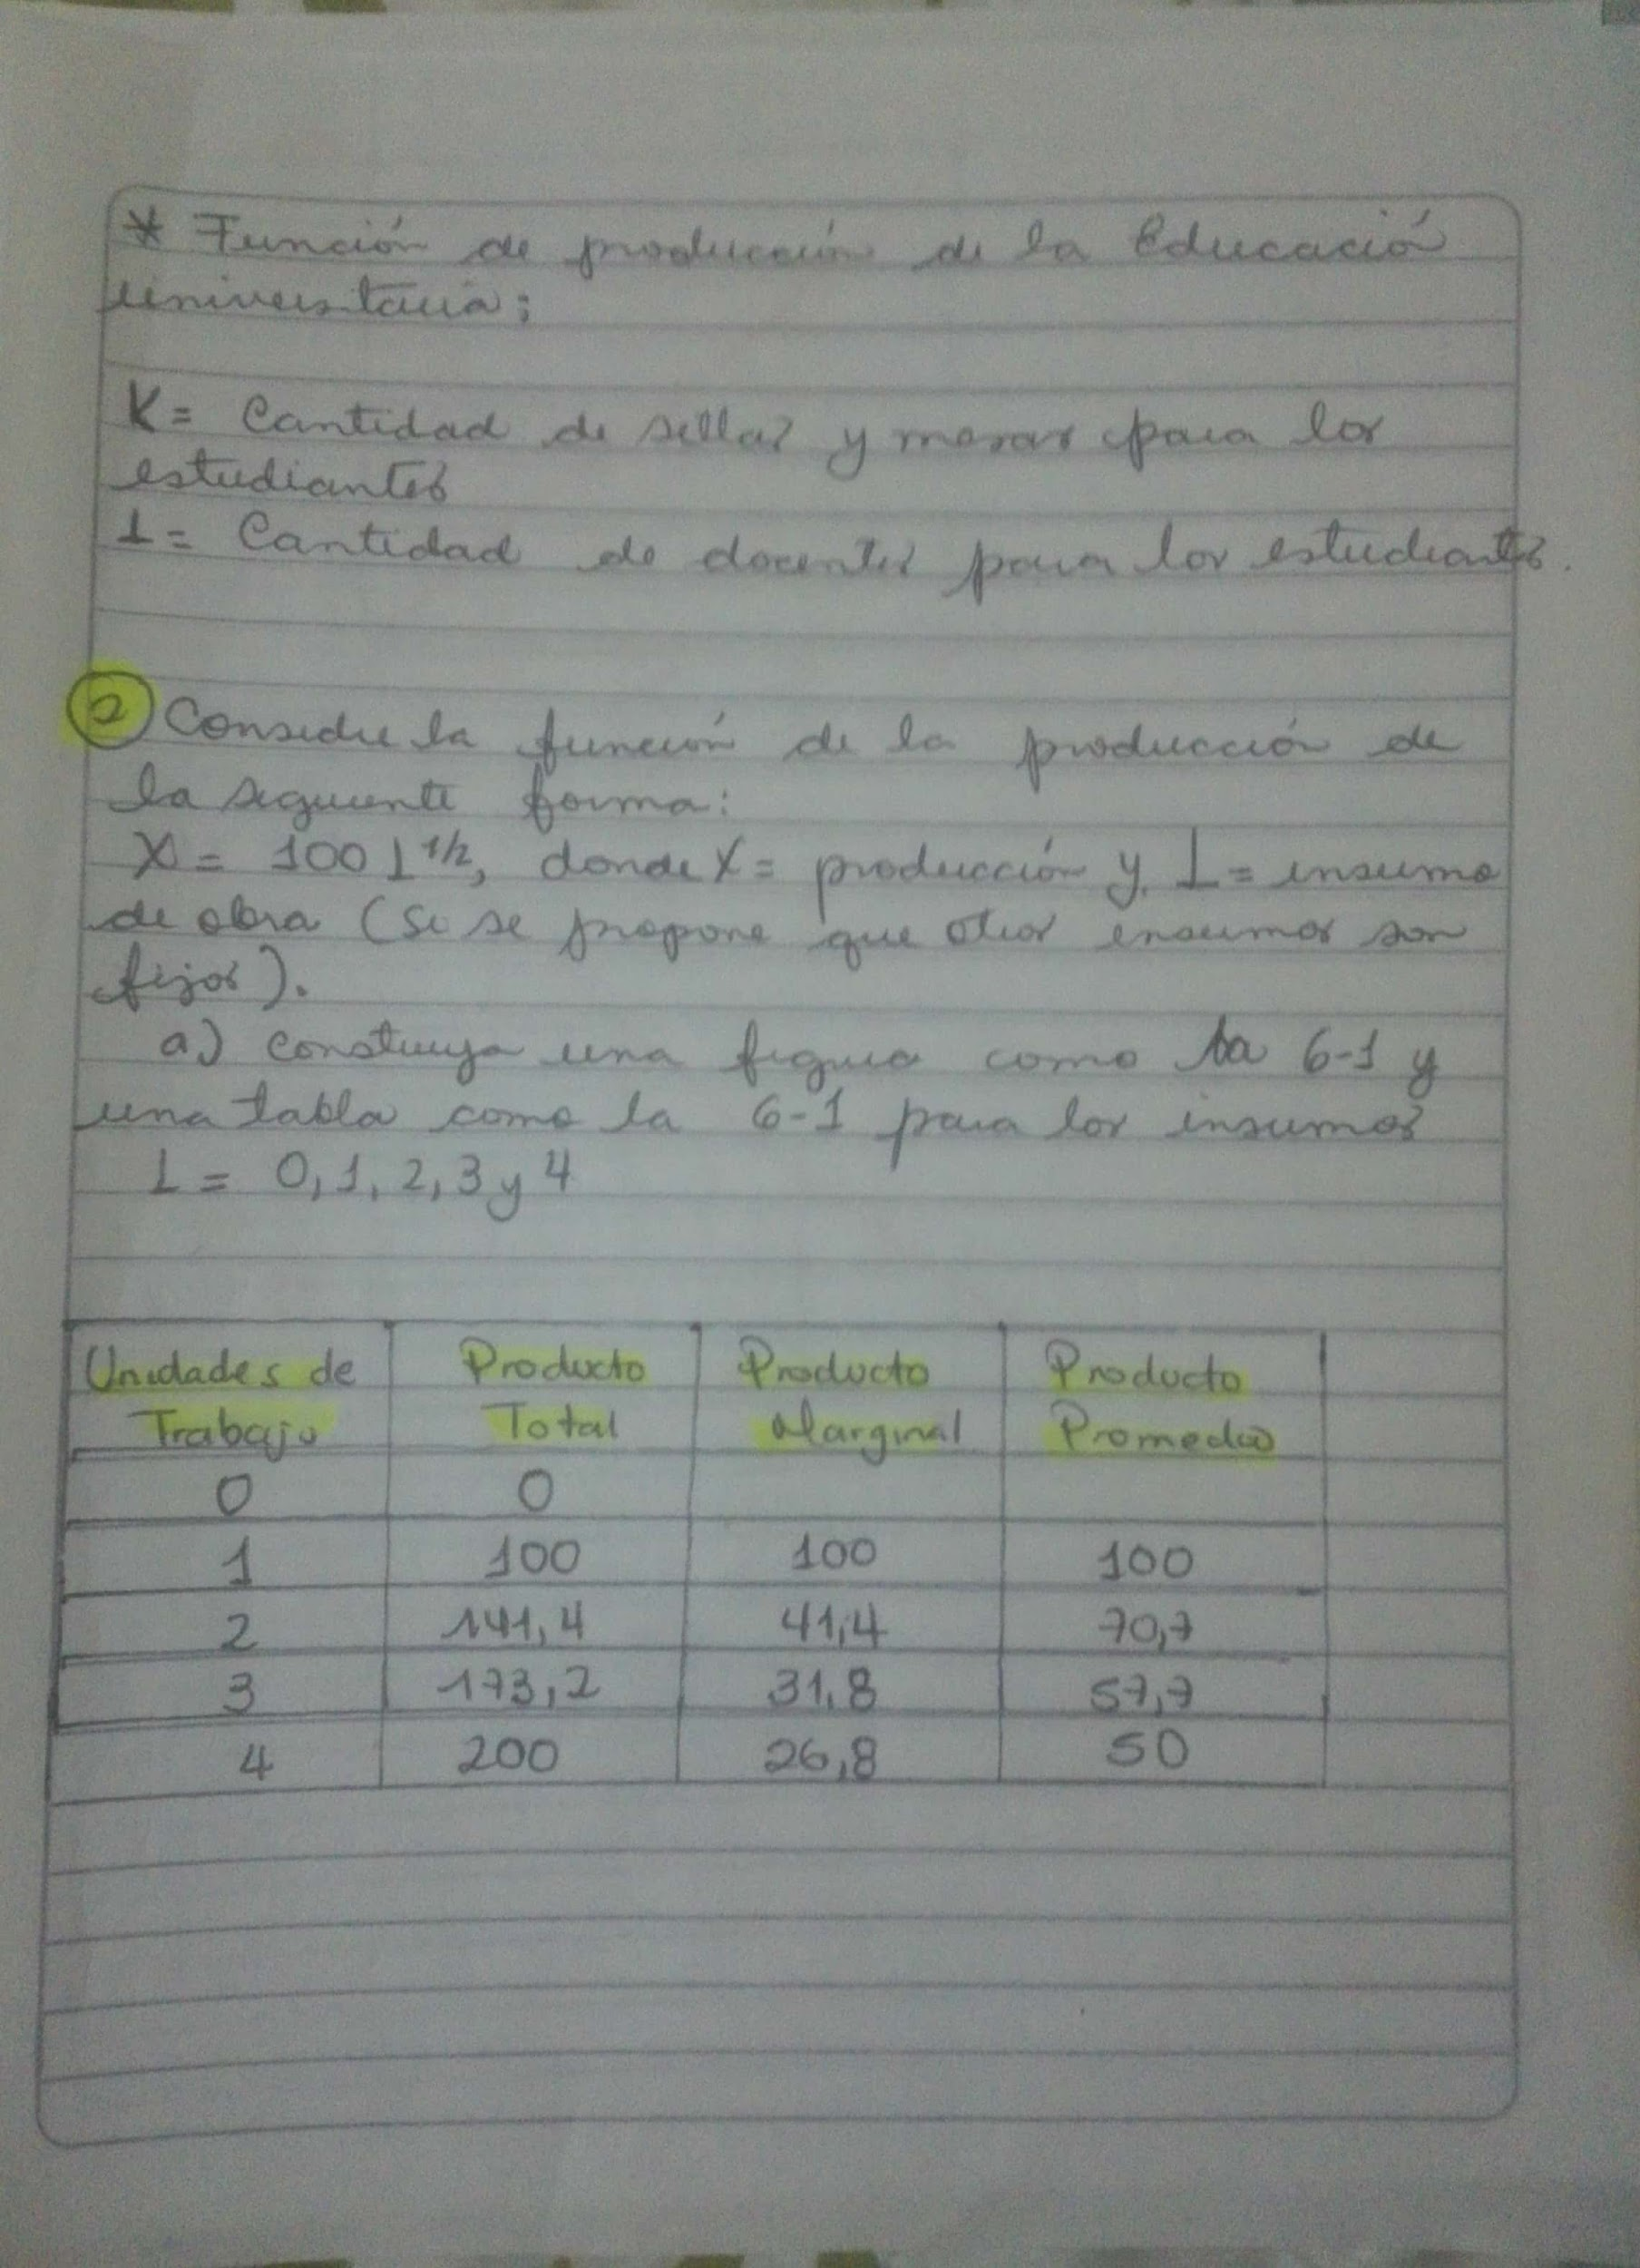 * Función de producción de la Educació
Universitaria:
K= Cantidad de sillas y mesas para los
estudiantes
L= Cantidad de docentes para los estudiantes.
2 Considere la función de la producción de
la siguiente forma:
X = 100 L 1/2, donde X = producción y L = insumo
de obra (Si se propone que otros insumos son
fijos).
a) Construya una figura como la 6-1 y
una tabla como la 6-1 para los insumos
L = 0, 1, 2, 3 y 4
Unidades de Producto Producto Producto
Trabajo Total Marginal Promedio
0 0
1 100 100 100
2 141,4 41,4 70,7
3 173,2 31,8 57,7
4 200 26,8 50